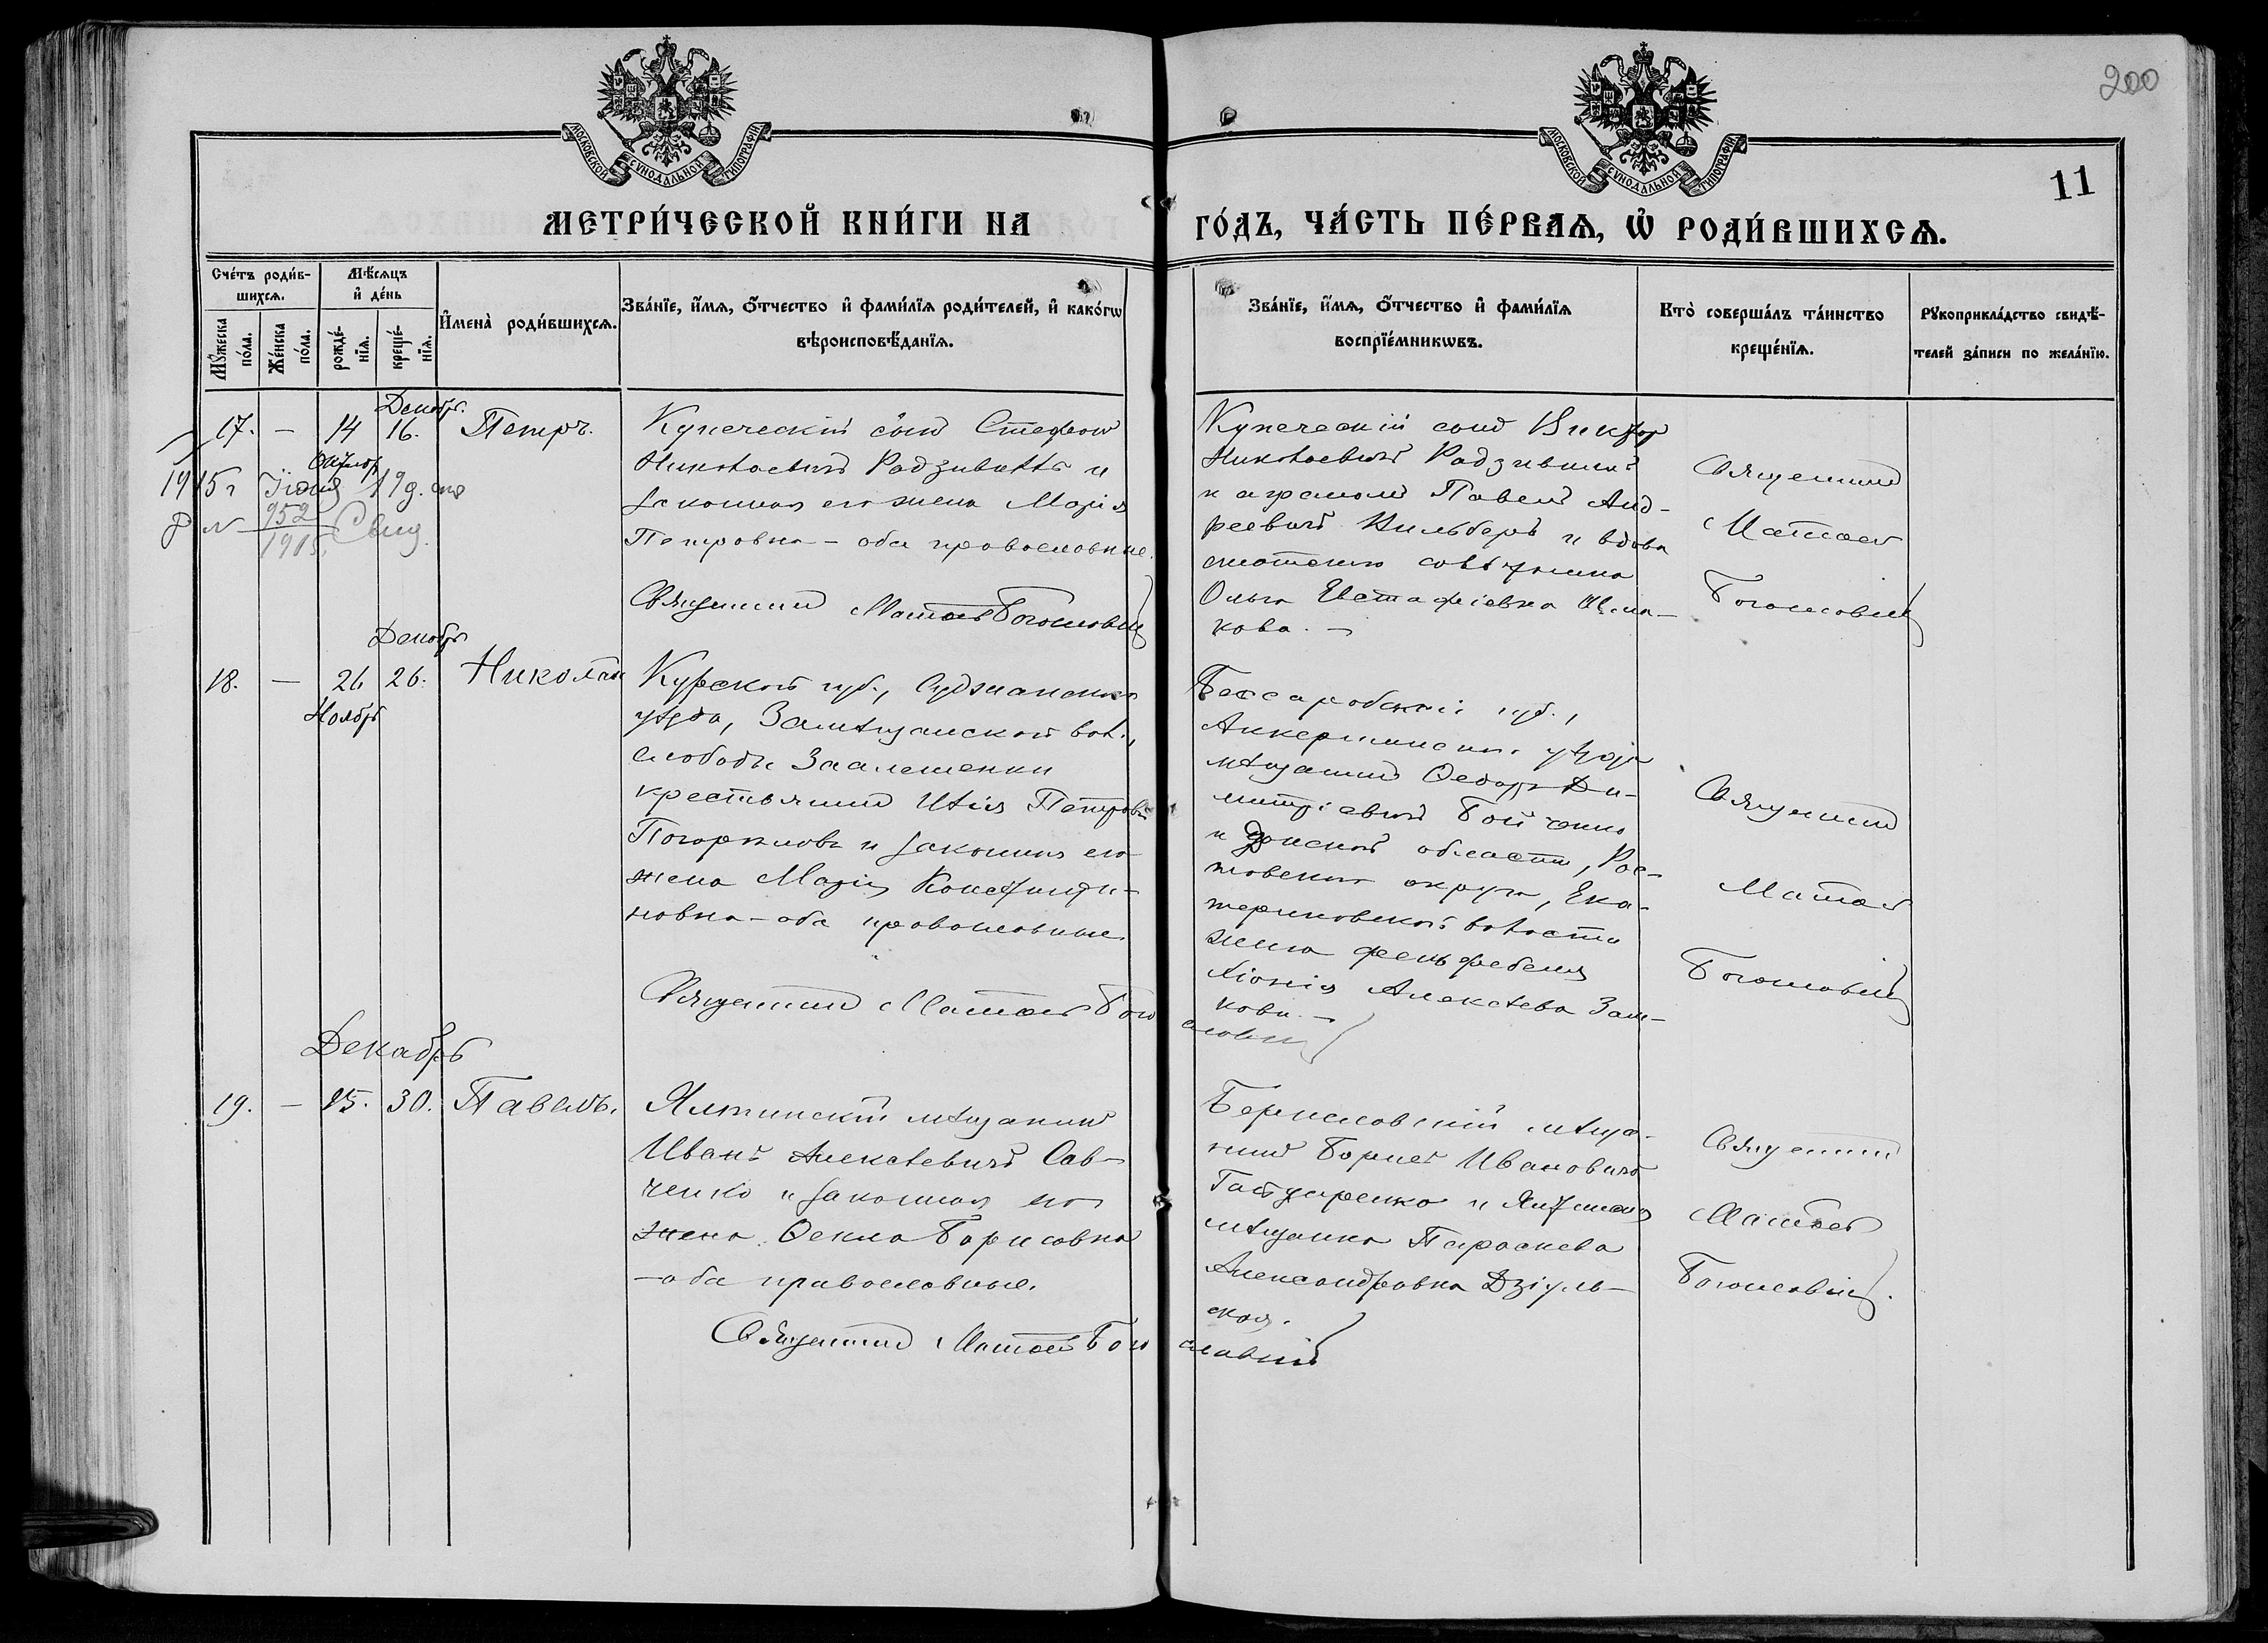 200
МОСКОВСКОЙ СѴНОДАЛЬНОЙ ТИПОГРАФІИ
МОСКОВСКОЙ СѴНОДАЛЬНОЙ ТИПОГРАФІИ
11
МЕТРИ́ЧЕСКОЙ КНИ́ГИ НА
ГО́ДЪ, ЧА́СТЬ ПЕ́РВАѦ, Ѽ РОДИ́ВШИХСѦ.
Сче́тъ роди́в-
шихсѧ.
Мꙋ́жеска
по́ла.
Же́нска
по́ла.
Мѣ́сѧцъ
и҆ де́нь
рожде́-
нїѧ.
креще́-
нїѧ.
И҆мена̀ роди́вшихсѧ.
Зва́нїе, и҆́мѧ, ѻ҆́тчество и҆ фами́лїѧ роди́телей, и҆ како́гѡ
вѣроисповѣ́данїѧ.
Зва́нїе, и҆́мѧ, ѻ҆́тчество и҆ фами́лїѧ
воспрїе́мникѡвъ.
Кто̀ соверша́лъ та́инство
креще́нїѧ.
Рꙋкоприкла́дство свидѣ́-
телей за́писи по жела́нїю.
Декабрь.
17. — 14 16. Петръ.
Октябр
1915 г Іюня 19 д.
№ 952
1915. Свид.
Купеческій сынъ Стефанъ
Николаевичъ Радзивиллъ и
законная его жена Марія
Петровна – оба православные.
Священникъ Матѳей Богословскій
Купеческій сынъ Викторъ
Николаевичъ Радзивиллъ
и агрономъ Павелъ Анд-
реевичъ Вильберъ и вдова
статскаго совѣтника
Ольга Евстафіевна
кова. —
Священникъ
Матѳей
Богословскій
Декабрь
18. — 26 26. Николай
Ноябрь
Курской губ., Суджанскаго
уѣзда, Замѣщанской вол.,
слободы Заалешенки
крестьянинъ Илія Петровъ
Погорѣловъ и законная его
жена Марія Констанди-
новна – оба православные
Священникъ Матѳей Бого
словскій
Бессарабской губ.,
Аккерманскаго уѣзда
мѣщанинъ Ѳеодоръ Ди-
митріевичъ Бойченко
и Донской области, Рос-
товскаго округа, Ека-
териновской волости
жена фельдфебеля
Хіонія Алексѣева Зай-
кова. —
Священникъ
Матѳей
Богословскій
Декабрь
19. — 15. 30. Павелъ.
Ялтинскій мѣщанинъ
Иванъ Алексѣевичъ Сав-
ченко и законная его
жена Ѳекла Борисовна
— оба православные.
Священникъ Матѳей Бого
словскій
Бериславскій мѣща-
нинъ Борисъ Ивановичъ
Гайдаренко и Ялтинская
мѣщанка Параскева
Александровна Дзіуль-
ская.
Священникъ
Матѳей
Богословскій.